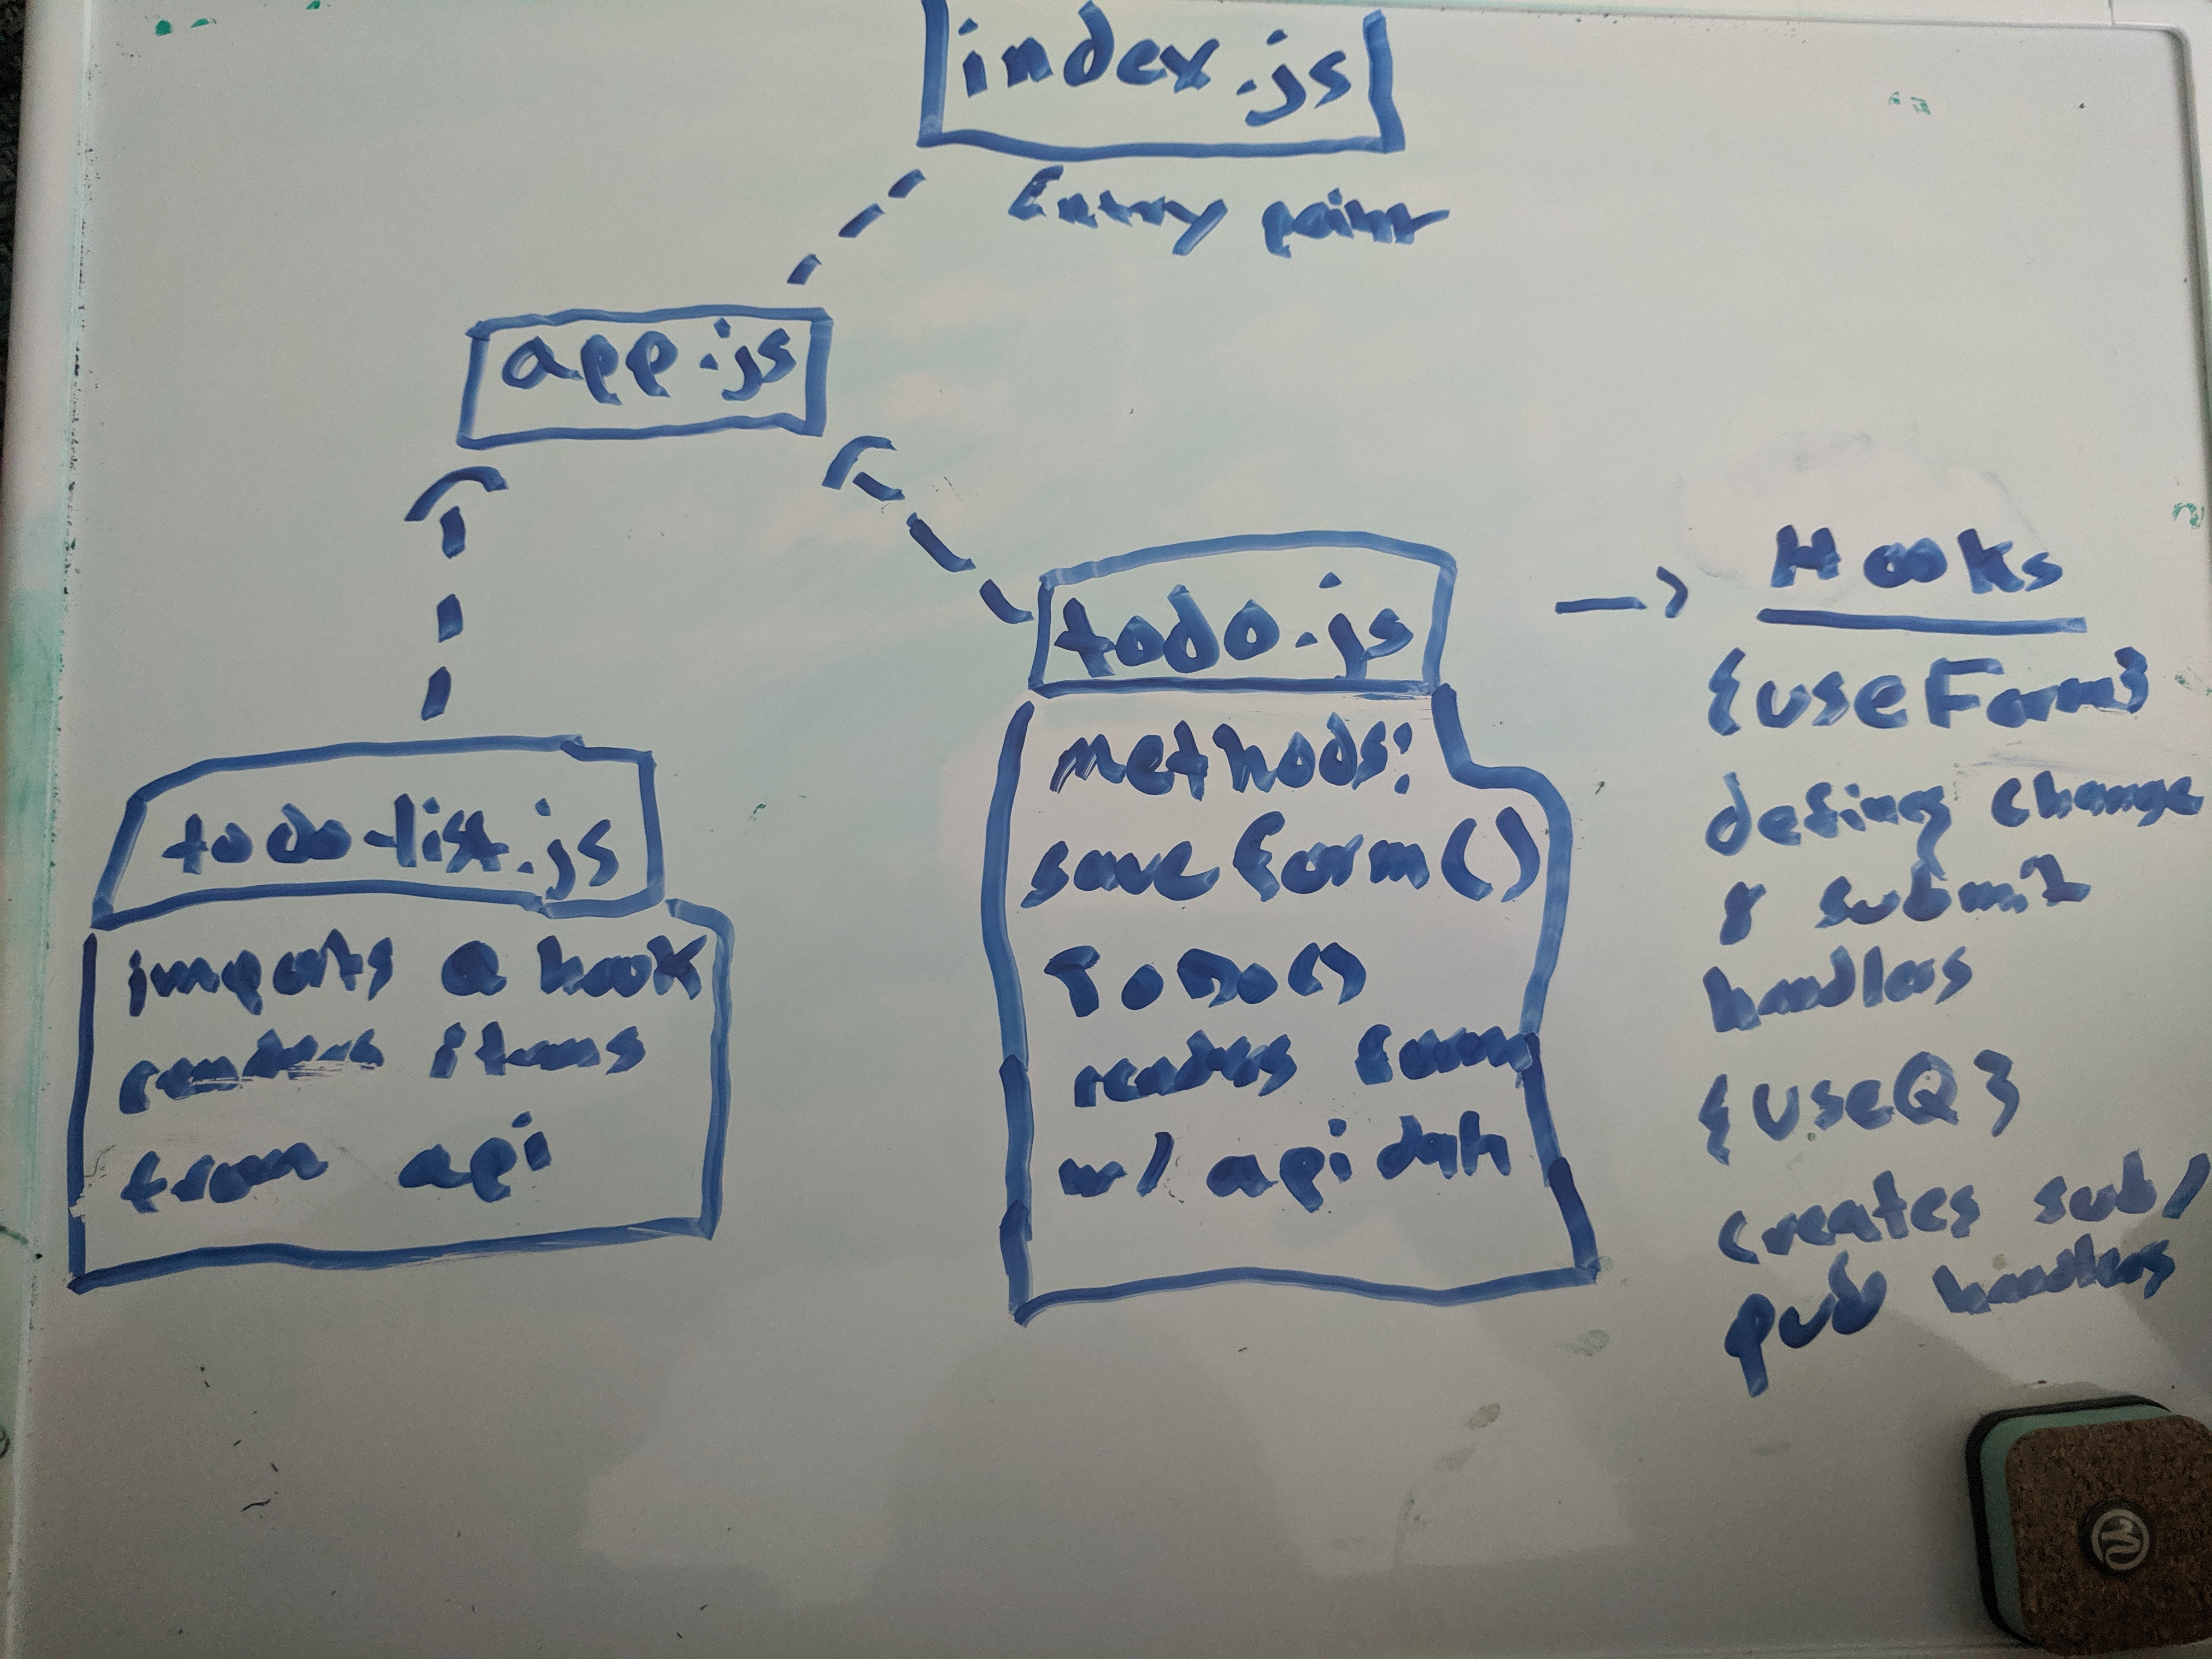 index.js
Entry point
app.js
todo-list.js
imports a hook
renders items
from api
todo.js
methods:
save form()
ToDo()
renders form
w/ api data
Hooks
{useForm}
defines change
& submit
handlers
{useQ}
creates sub/
pub handlers